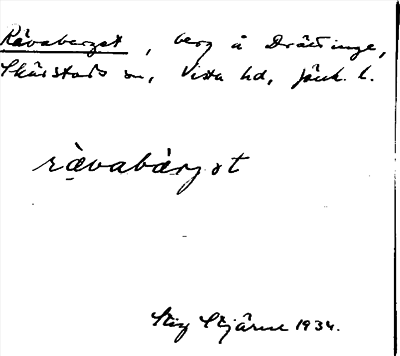 Rävaberget, berg å Drättinge,
Skärstads sn, Vista hd, Jönk. l.
rävabärjət
Stig Stjärne 1934.